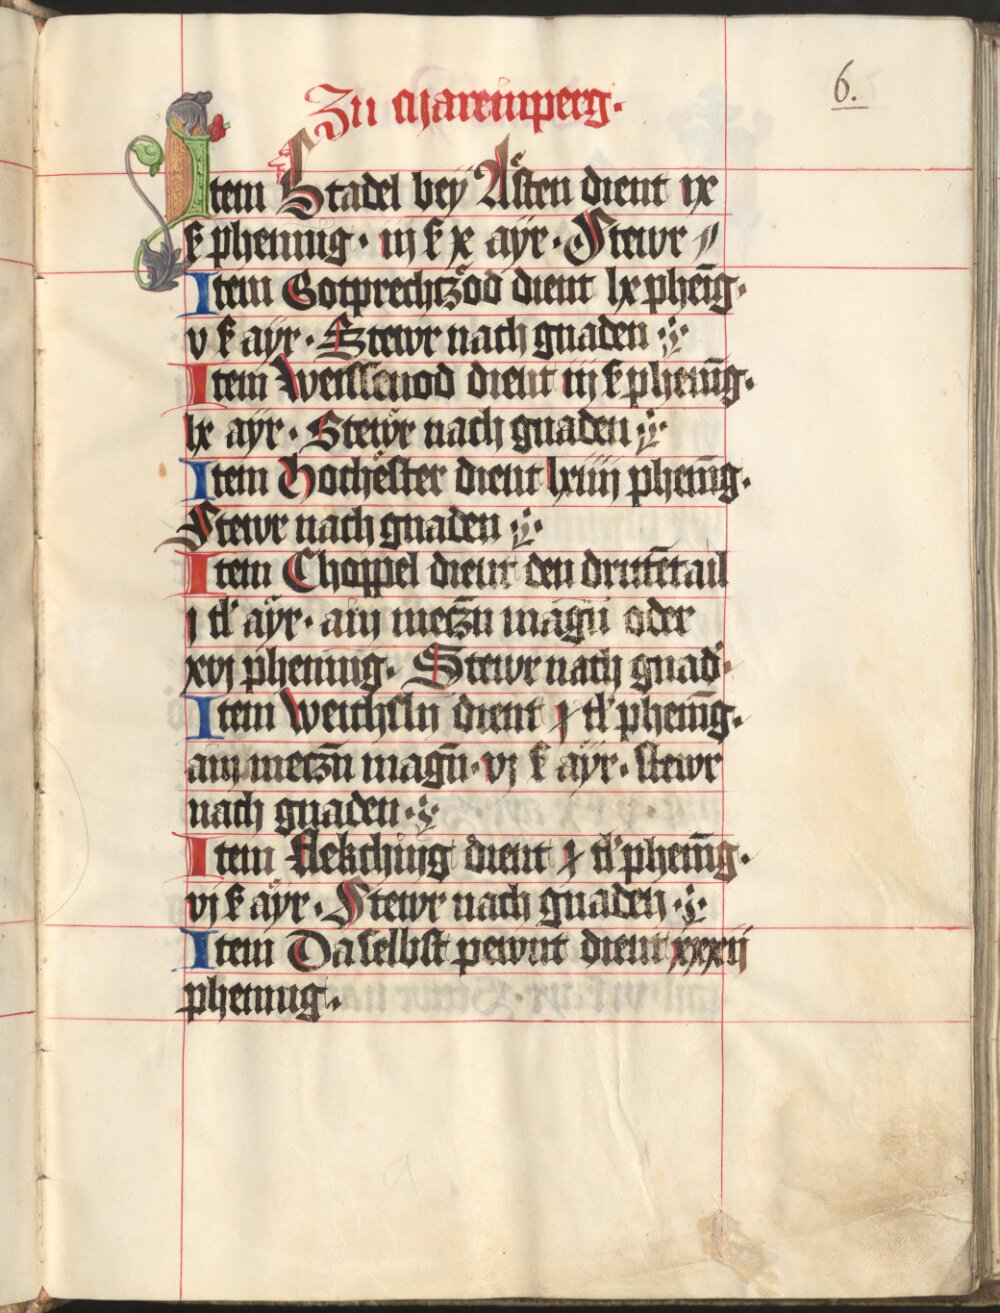 6.
Zu Mareinperg.
Item Stadel bey Ästen dient ix
ß phening · iij ß x aÿr · Stewr
Item Gotprechtzöd dient lx phenīg·
v ß ayr · Stewr nach gnaden
Item Weissenod dient iij ß phenīg·
lx aÿr · Stewr nach gnaden
Item Hochester dient lxiiij phenīg·
Stewr nach gnaden
Item Choppel dient den drittētail
j tl' aÿr · ain meczn magn̄ oder
xvj phening · Stewr nach gnad·
Item Weichsln dient j tl' phenīg·
ain meczn̄ magn̄ · vj ß aÿr · stewr
nach gnaden ·
Item Flekching dient j tl' phenīg·
vj ß aÿr · Stewr nach gnaden
Item Daselbst pewnt dient xxxij
phening ·